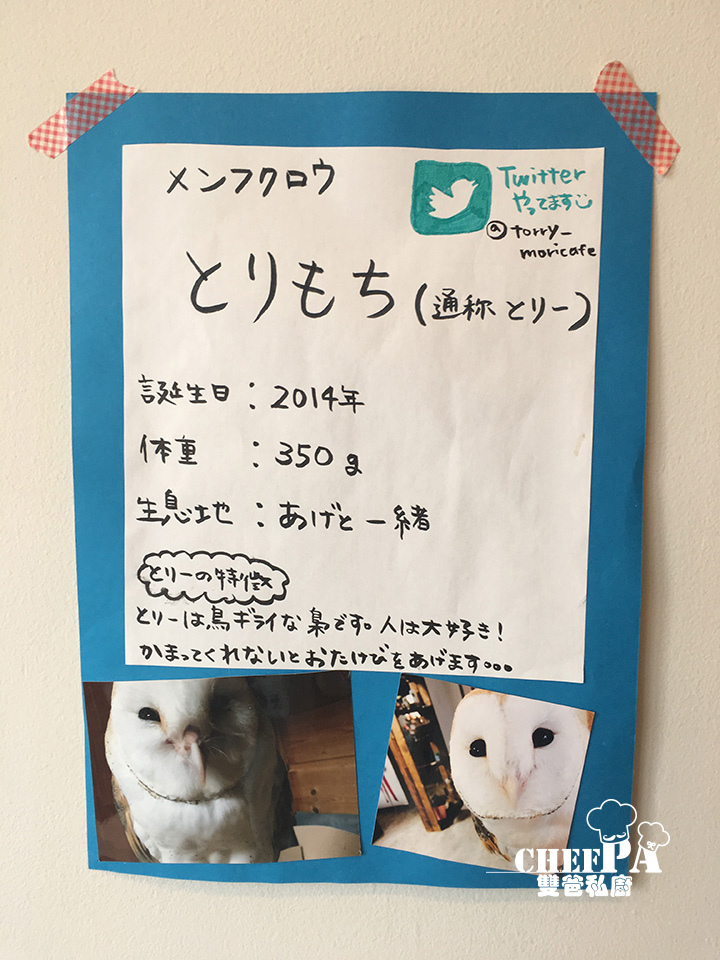 メンフクロウ
Twitter
やってます
@torry_
moricafe
とりもち(通称 とりー)
誕生日:2014年
体重 :350g
生息地:あげと一緒
とりーの特徴
とりーは鳥ギライな梟です。人は大好き!
かまってくれないとおたけびをあげます...
CHEFPA
雙爸私廚